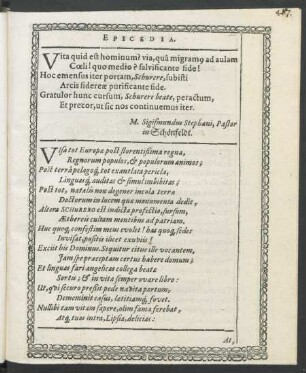 EPICEDIA.
Vita quid est hominum? via, quâ migramꝰ ad aulam
Cœli! quo medio? salvificante fide!
Hoc emensus iter portam, Schurere, subisti
Arcis sidereæ purificante fide.
Gratulor hunc cursum, Schurere beate, peractum,
Et precor, ut sic nos continuemus iter.
M. Sigismundus Stephani, Pastor
in Schönfeldt.
Visa tot Europæ post florentissima regna,
Regnorum populos, & populorum animos;
Post terrâ pelagoq́, tot exantlata pericla,
Linguasq́, auditas & simul imbibitas;
Post tot, natalis non degener incola terræ
Doctorum in lucem quæ monumenta dedit,
Altera SCHURERO est indicta profectio, sursum,
Æthereis cultam mentibus ad patriam,
Huc quoq́, confestim meus evolet! hac quoq́, sedes
Invisat, positis ilicet exubiis!
Exciit hîc Dominus. Sequitur citus ille vocantem,
Jam spe præceptam certus habere domum;
Et linguæ fari angelicas collega beatæ
Sortis; & in vita semper ovare libro:
Ut, qui securo pressit pede nasvita portum,
Deneminit casus, lætitiamq́, fovet.
Nullibi tam vitam sapere, olim fama ferebat,
Atq́, tuas intra, Lipsia, delicias:
At,